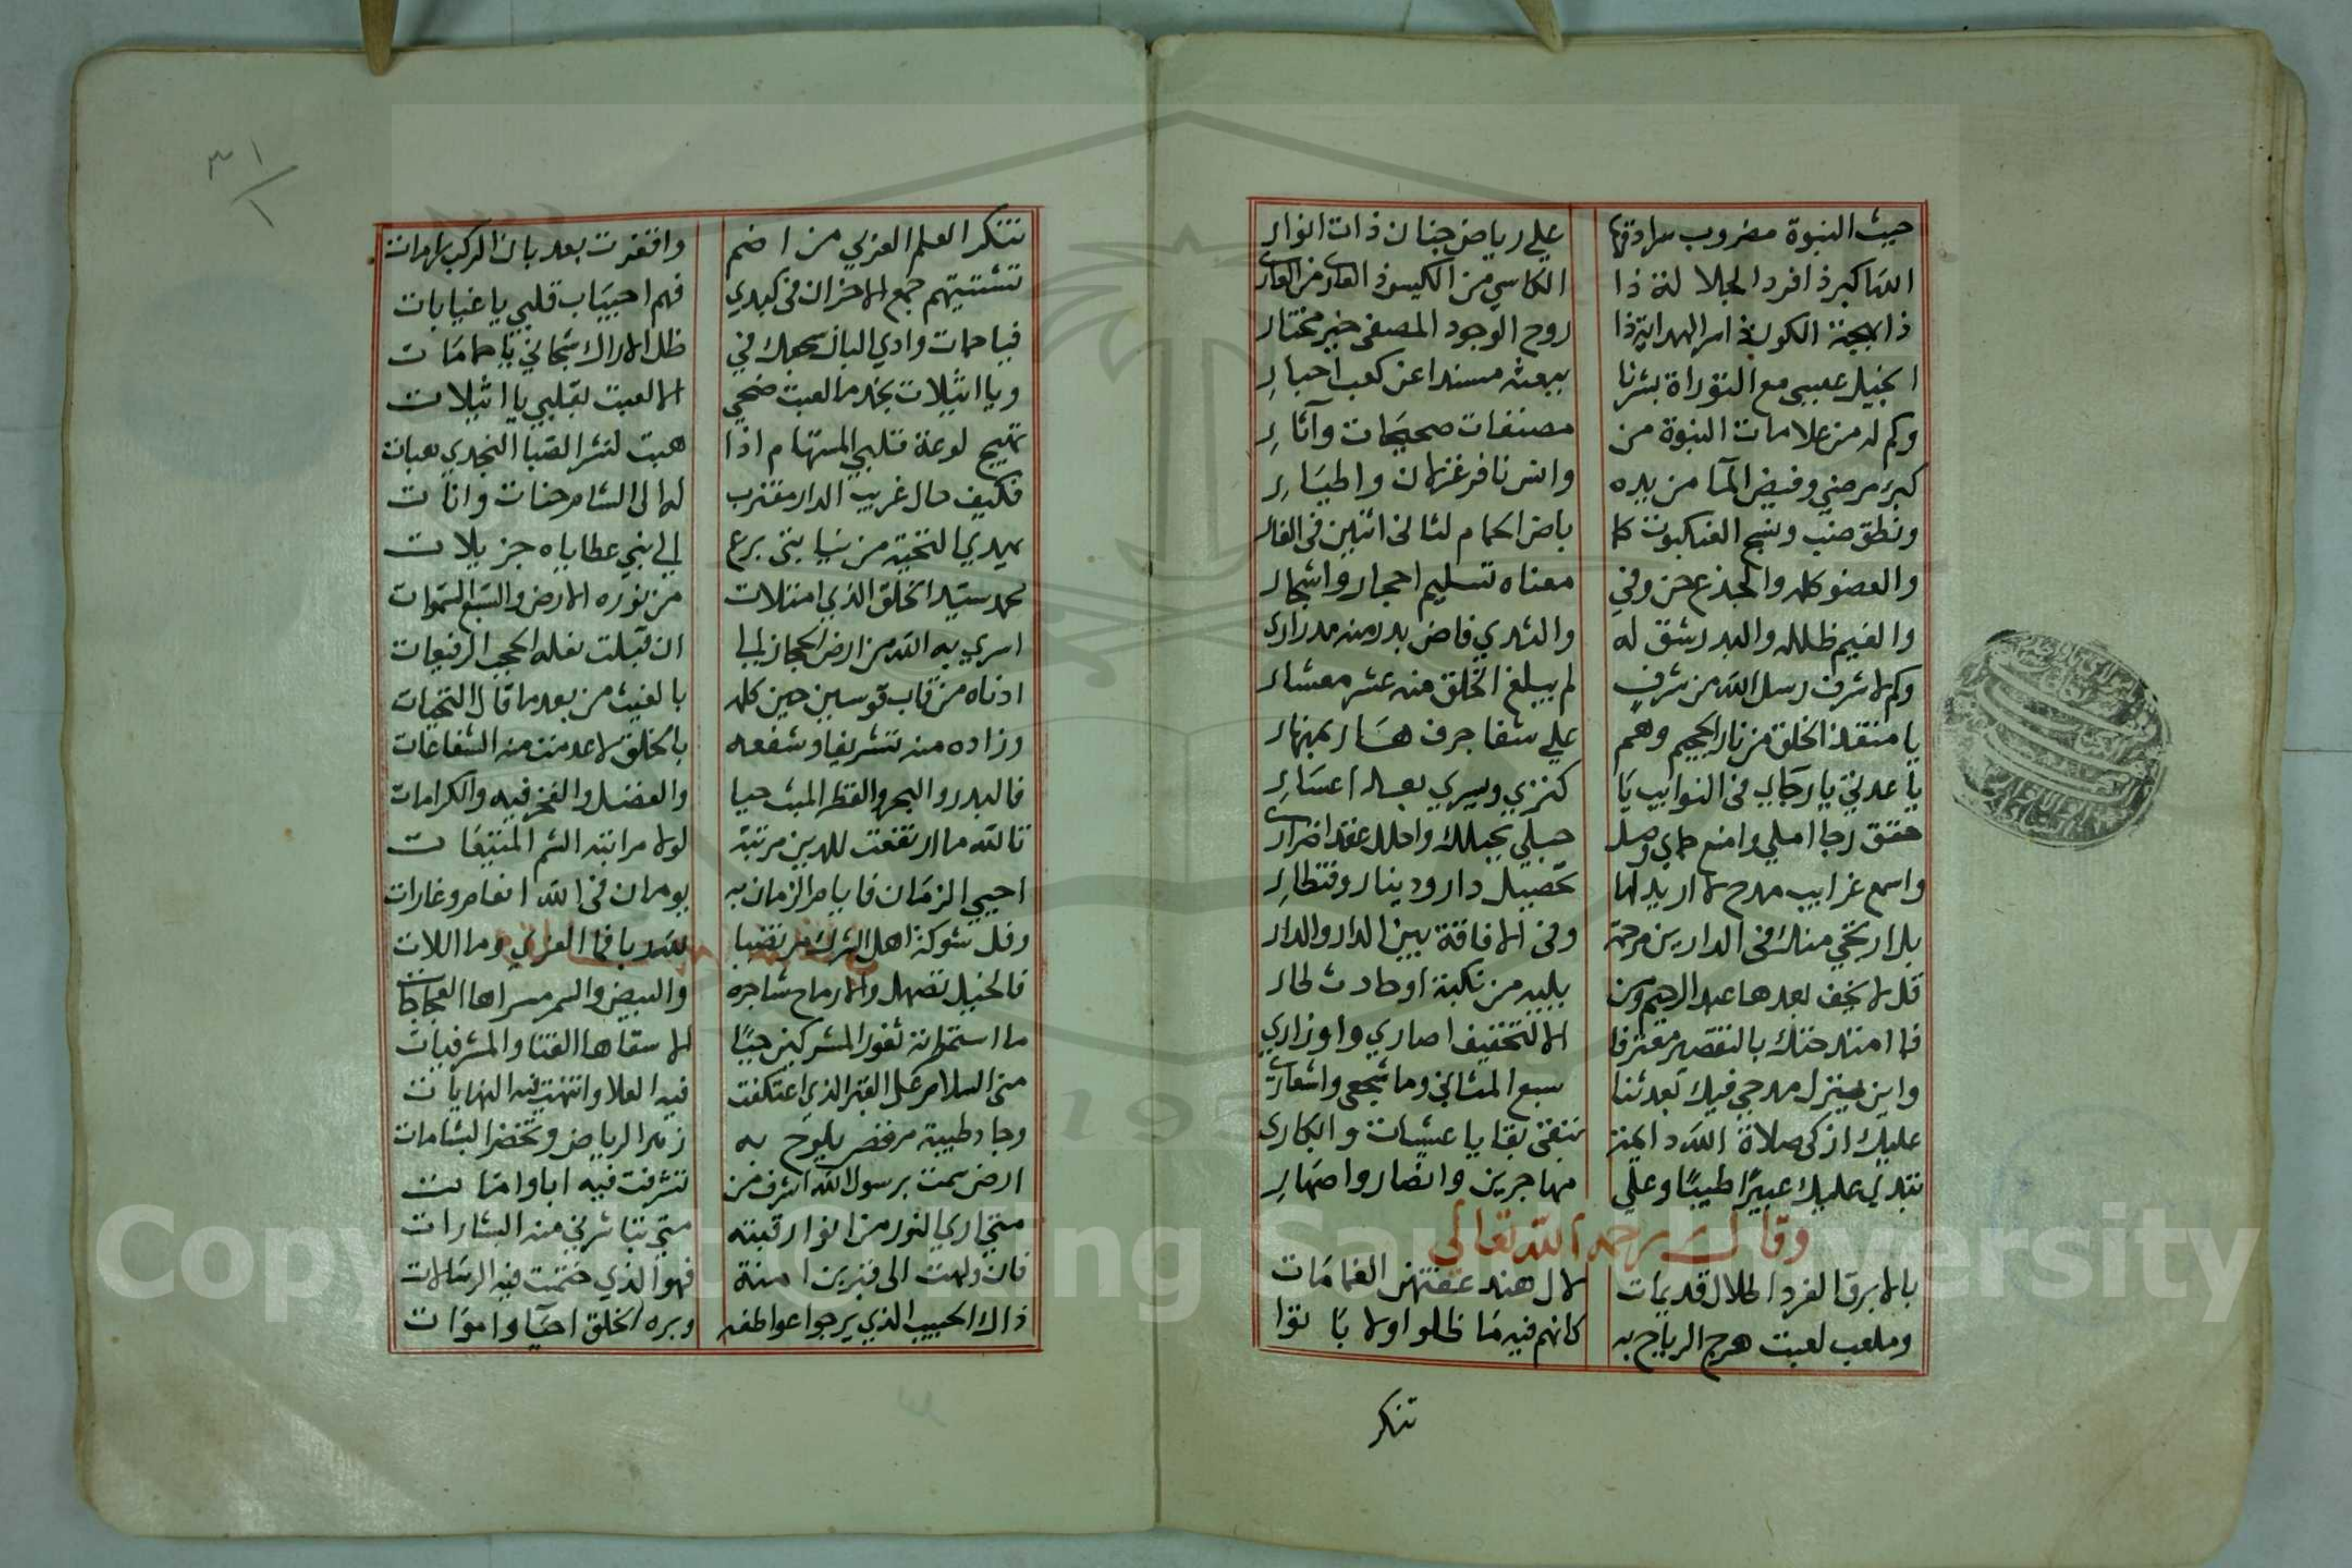 حيث النبوة مضروب سرادقها علي رياض جنان ذات انوار
الله اكبر ذا فرد الجلالة ذا الكاسي من الكيس ذا العاري من العار
ذا بهجة الكون ذا سر الهداية ذا روح الوجود المصفي خير مختار
انجيل عيسى مع التوراة بشرنا ببعثه مسندا عن كعب احبار
وكم له من علامات النبوة من مصنفات صحيحات وآثار
كبرء مرضي وفيض المآ من يده وانس نافر غزلان واطيار
ونطق ضب ونسج العنكبوت كما باض الحمام لثاني اثنين في الغار
والعضو كلمه والجذع حن وفي معناه تسليم احجار واشجار
والغيم ظلله والبدر شق له والثدي فاض بدر منه مدرار
وكم لاشرف رسل الله من شرف لم يبلغ الخلق منه عشر معشار
يا منقذ الخلق من نار الجحيم وهم علي شفا جرف هار بمنهار
يا عدتي يا رجاي في النوايب يا كنزي ويسري بعد اعسار
حقق رجا املي وامنع حماي وصل حبلي بحبلك واحلل عقد اضراري
واسمع غرايب مدح لا اريد لها تحصيل دار ودينار وقنطار
بل ارتجي منك في الدارين مرحمة وفي الافاقة بين الدار والدار
قل لا تخف بعدها عبد الرحيم ومن يليه من نكبة او حادث طار
فما امتدحتك بالتقصير معترفا الا لتخفيف اصاري واوزاري
واين منزل مدحي فيك بعد ثنا سبع المثاني وما سجعي واشعاري
عليك ازكى صلاة الله دايمة تبقى بقايا عشيات وابكار
تندي عليك عبيرا طيبا وعلي مهاجرين وانصار واصهار
وقال رحمه الله تعالى
بالابرق الفرد اطلال قديمات لال هند عفتهن الغمامات
وملعب لعبت هرج الرياح به كانهم فيه ما ظلوا ولا باتوا
تنكر
٣١
١
تنكر العلم الغربي من اضم واقفرت بعد بان الركب رامات
تشتيتهم جمع الاحزان في كبدي فهم احيباب قلبي يا غيابات
فيا حمات وادي البان سجعك في ظل الاراك شجاني يا حمامات
ويا اثيلات نجد ما لعبت ضحي الا لعبت بقلبي يا اثيلات
تهيج لوعة قلبي المستهام اذا هبت لنشر الصبا النجدي هبات
فكيف حال غريب الدار مغترب له الى الشام حنات وانات
يهدي التحية من نيابتي برع الي نبي عطاياه جزيلات
محمد سيد الخلق الذي امتلات من نوره الارض والسبع السموات
اسري به الله من ارض الحجاز الي ان قبلت نعله الحجب الرفيعات
ادناه من قاب قوسين حين كلمه بالغيث من بعد ما قال التحيات
وزاده منه تشريفا وشفعه بالخلق لا عدمت منه الشفاعات
فالبدر والبحر والقطر الملث حيا والفضل والفخر فيه والكرامات
تالله ما ارتفعت للدين مرتبة لولا مراتبه الشم المنيفات
احيي الزمان فايام الزمان به يومان في الله انعام وغارات
وفل شوكة اهل الشرك مرتضيا لله باق العزي وما اللات
فالخيل تصهل والارماح شاجرة والبيض والسمر مسراها العجاجات
ما استحولت ثغور المشركين حيا الا سقاها القنا والمشرفيات
مني السلام على القبر الذي اعتكفت فيه العلا وانتهت فيه النهايات
وجاد طيبة مرفض يلوح به زهر الرياض وتخضر البشامات
ارض سمت برسول الله اشرف من تشرفت فيه ابا وامات
متي اري النور من انوار قبته متي تباشرني منه البشارات
فان ولهت الى قبر بن امنة فهو الذي ختمت فيه الرسالات
ذاك الحبيب الذي يرجوا عواطفه وبره الخلق احيا واموات
Copyright © King Saud University
195